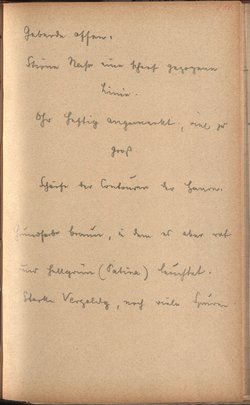 Geberde offen.
Stirne Nase eine scharf gezogene
Linie.
Ohr heftig angemerkt, viel zu
groß
Schärfe der Contouren der Haare.
Grundfarbe braun, in dem es aber rot
und hellgrün (Patina) leuchtet.
Starke Vergoldg, noch viele Spuren.